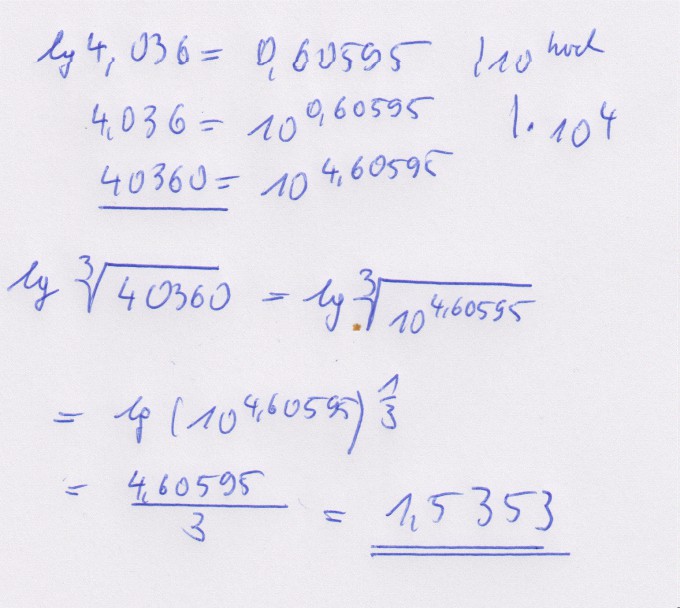 lg 4,036 = 0,60595 | 10^hoch
4,036 = 10^0,60595 | · 10^4
40360 = 10^4,60595
lg ³√40360 = lg ³√10^4,60595
= lg (10^4,60595)^1/3
= 4,60595/3 = 1,5353